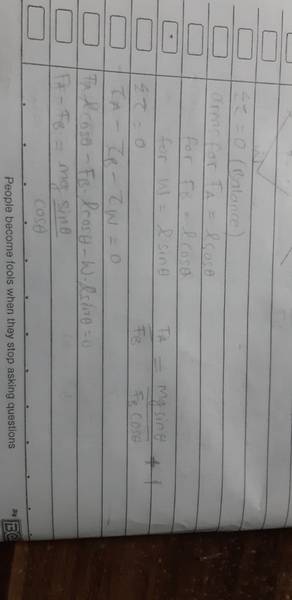 Στ = 0 (Balance)
arm for FA = l cosθ
for FB = l cosθ
for W = l sinθ
Στ = 0
τA - τB - τW = 0
FA l cosθ - FB l cosθ - W · l sinθ = 0
FA - FB = mg sinθ / cosθ
FA / FB = mg sinθ / FB cosθ + 1
People become fools when they stop asking questions